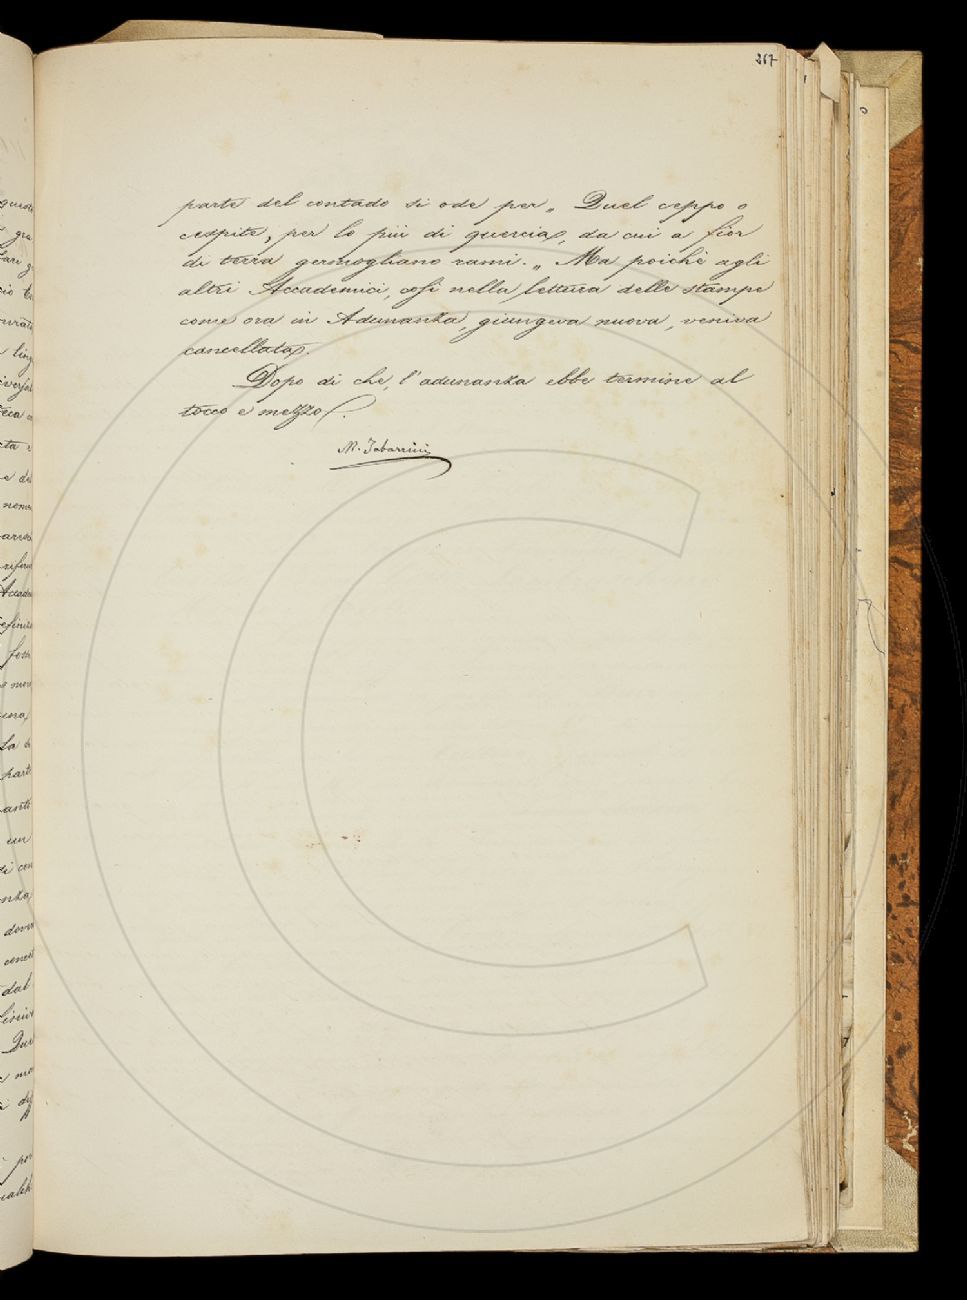 267
parte del contado si ode per „ Quel ceppo o
cespite, per lo più di quercia, da cui a fior
di terra germogliano rami. „ Ma poichè agli
altri Accademici, così nella lettura delle stampe
come ora in Adunanza, giungeva nuova, veniva
cancellata.
Dopo di che, l'adunanza ebbe termine al
tocco e mezzo.
M. Tabarrini